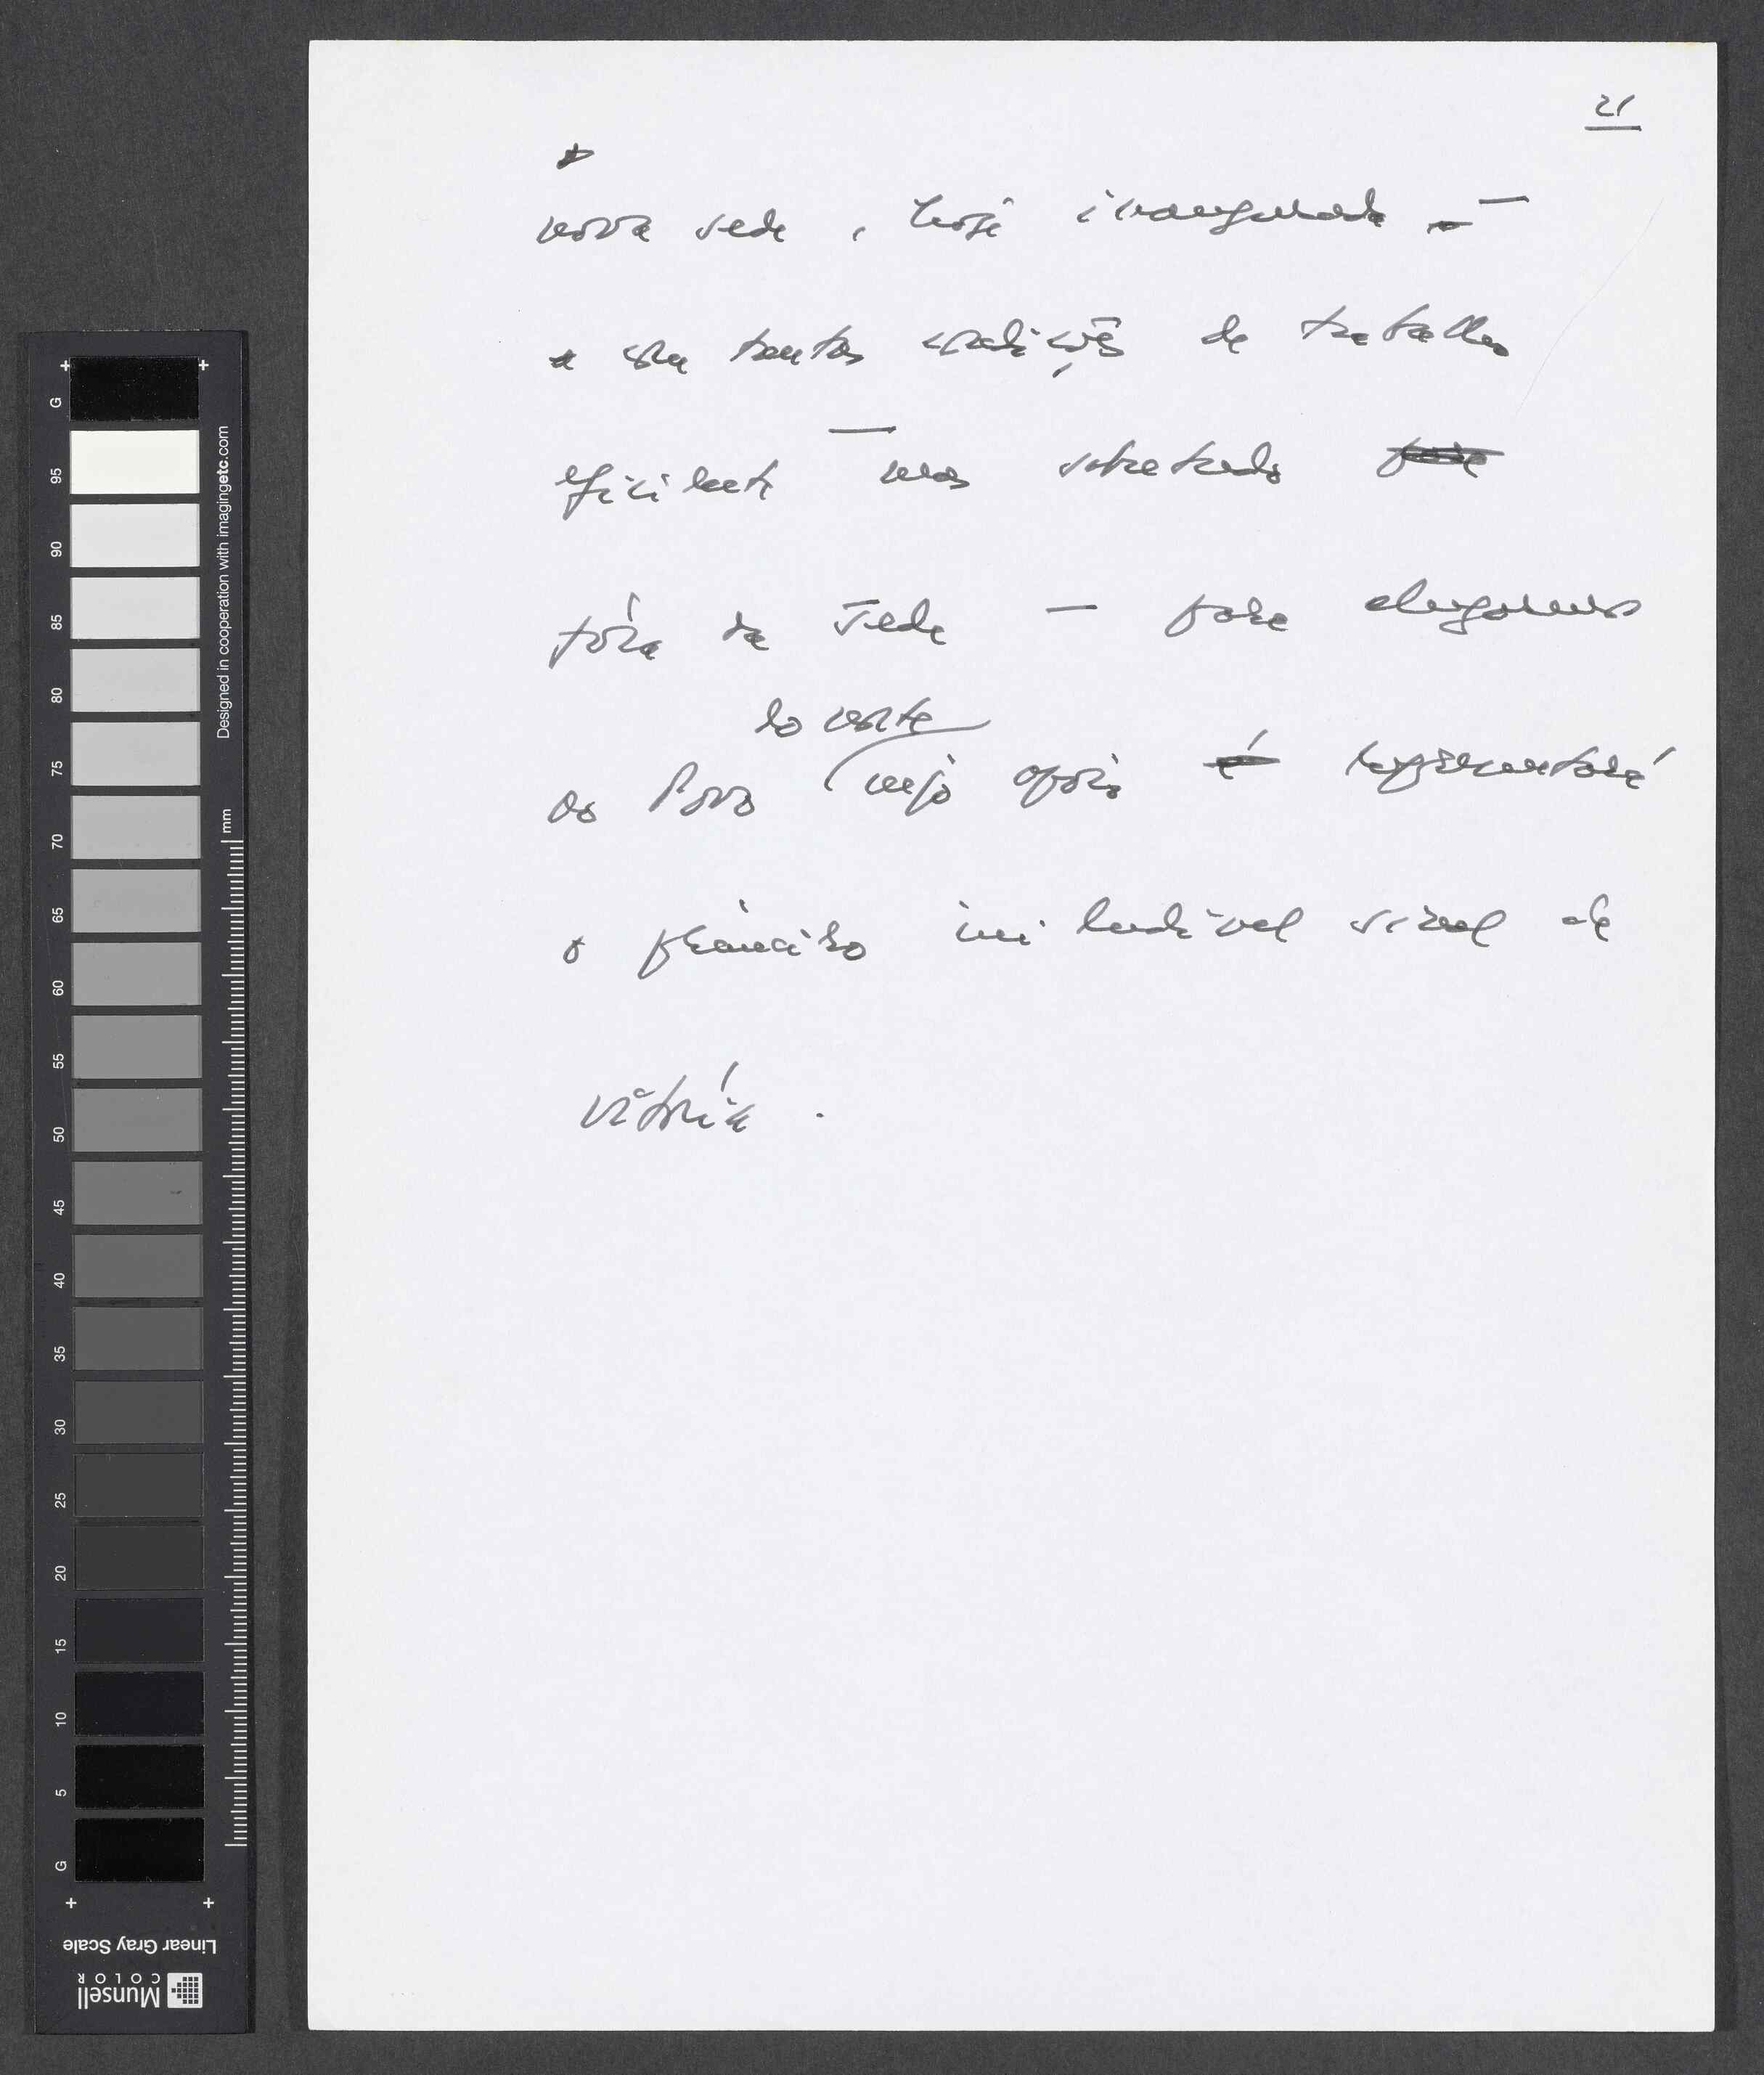 21
nova sede, hoje inaugurada —
e com tantas condições de trabalho
eficiente — mas sobretudo
fóra da sede — para chegarmos
do norte
ao Povo cujo apoio é representará
o primeiro iniludível sinal de
vitória.
G
95
90
85
80
75
70
65
60
55
50
45
40
35
30
25
20
15
10
5
G
Designed in cooperation with imagingetc.com
mm
Linear Gray Scale
Munsell
COLOR